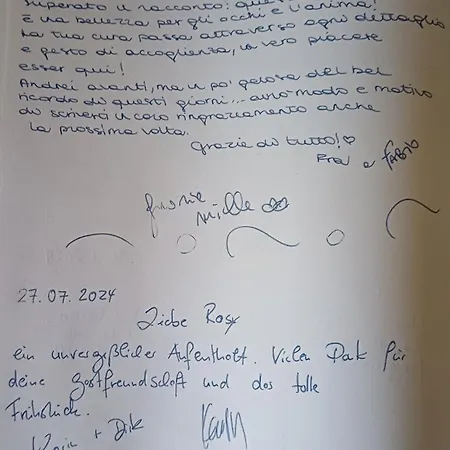 superato il racconto: que
è una bellezza per gli occhi e l'anima!
La tua cura passa attraverso ogni dettaglio
e gesto di accoglienza, è vero piacere
esser qui!
Andrei avanti, ma un po' gelosa del bel
ricordo di questi giorni... avrò modo e motivo
di scriverti il caro ringraziamento anche
la prossima volta.
Grazie di tutto!♡
Fra e FABIO
grazie
mille
27.07.2024
Liebe Rosy
ein unvergeßlicher Aufenthalt. Vielen Dak für
deine Gastfreundschaft und das tolle
Frühstück.
Karin + Dik